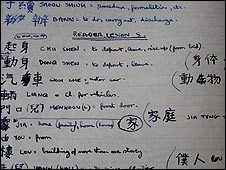 手續 SHOOU SHIUH = procedure, formalities, etc.
辦 BANN : to do, carry out, discharge.
READER LESSON 5.
起身 CHII SHEN : to depart, leave, rise up (from bed). (身体
動身 DONQ SHEN : to depart, leave. (動物
汽車 CHE : motor car.
輛 LIANQ = cl. for vehicles.
門口(兒) MENKOOU(L) = front door.
家 JIA : home (family), house (home) (家) 家庭 JIA TYNG
YOU = from
樓 LOU = building of more than one storey.
僕人